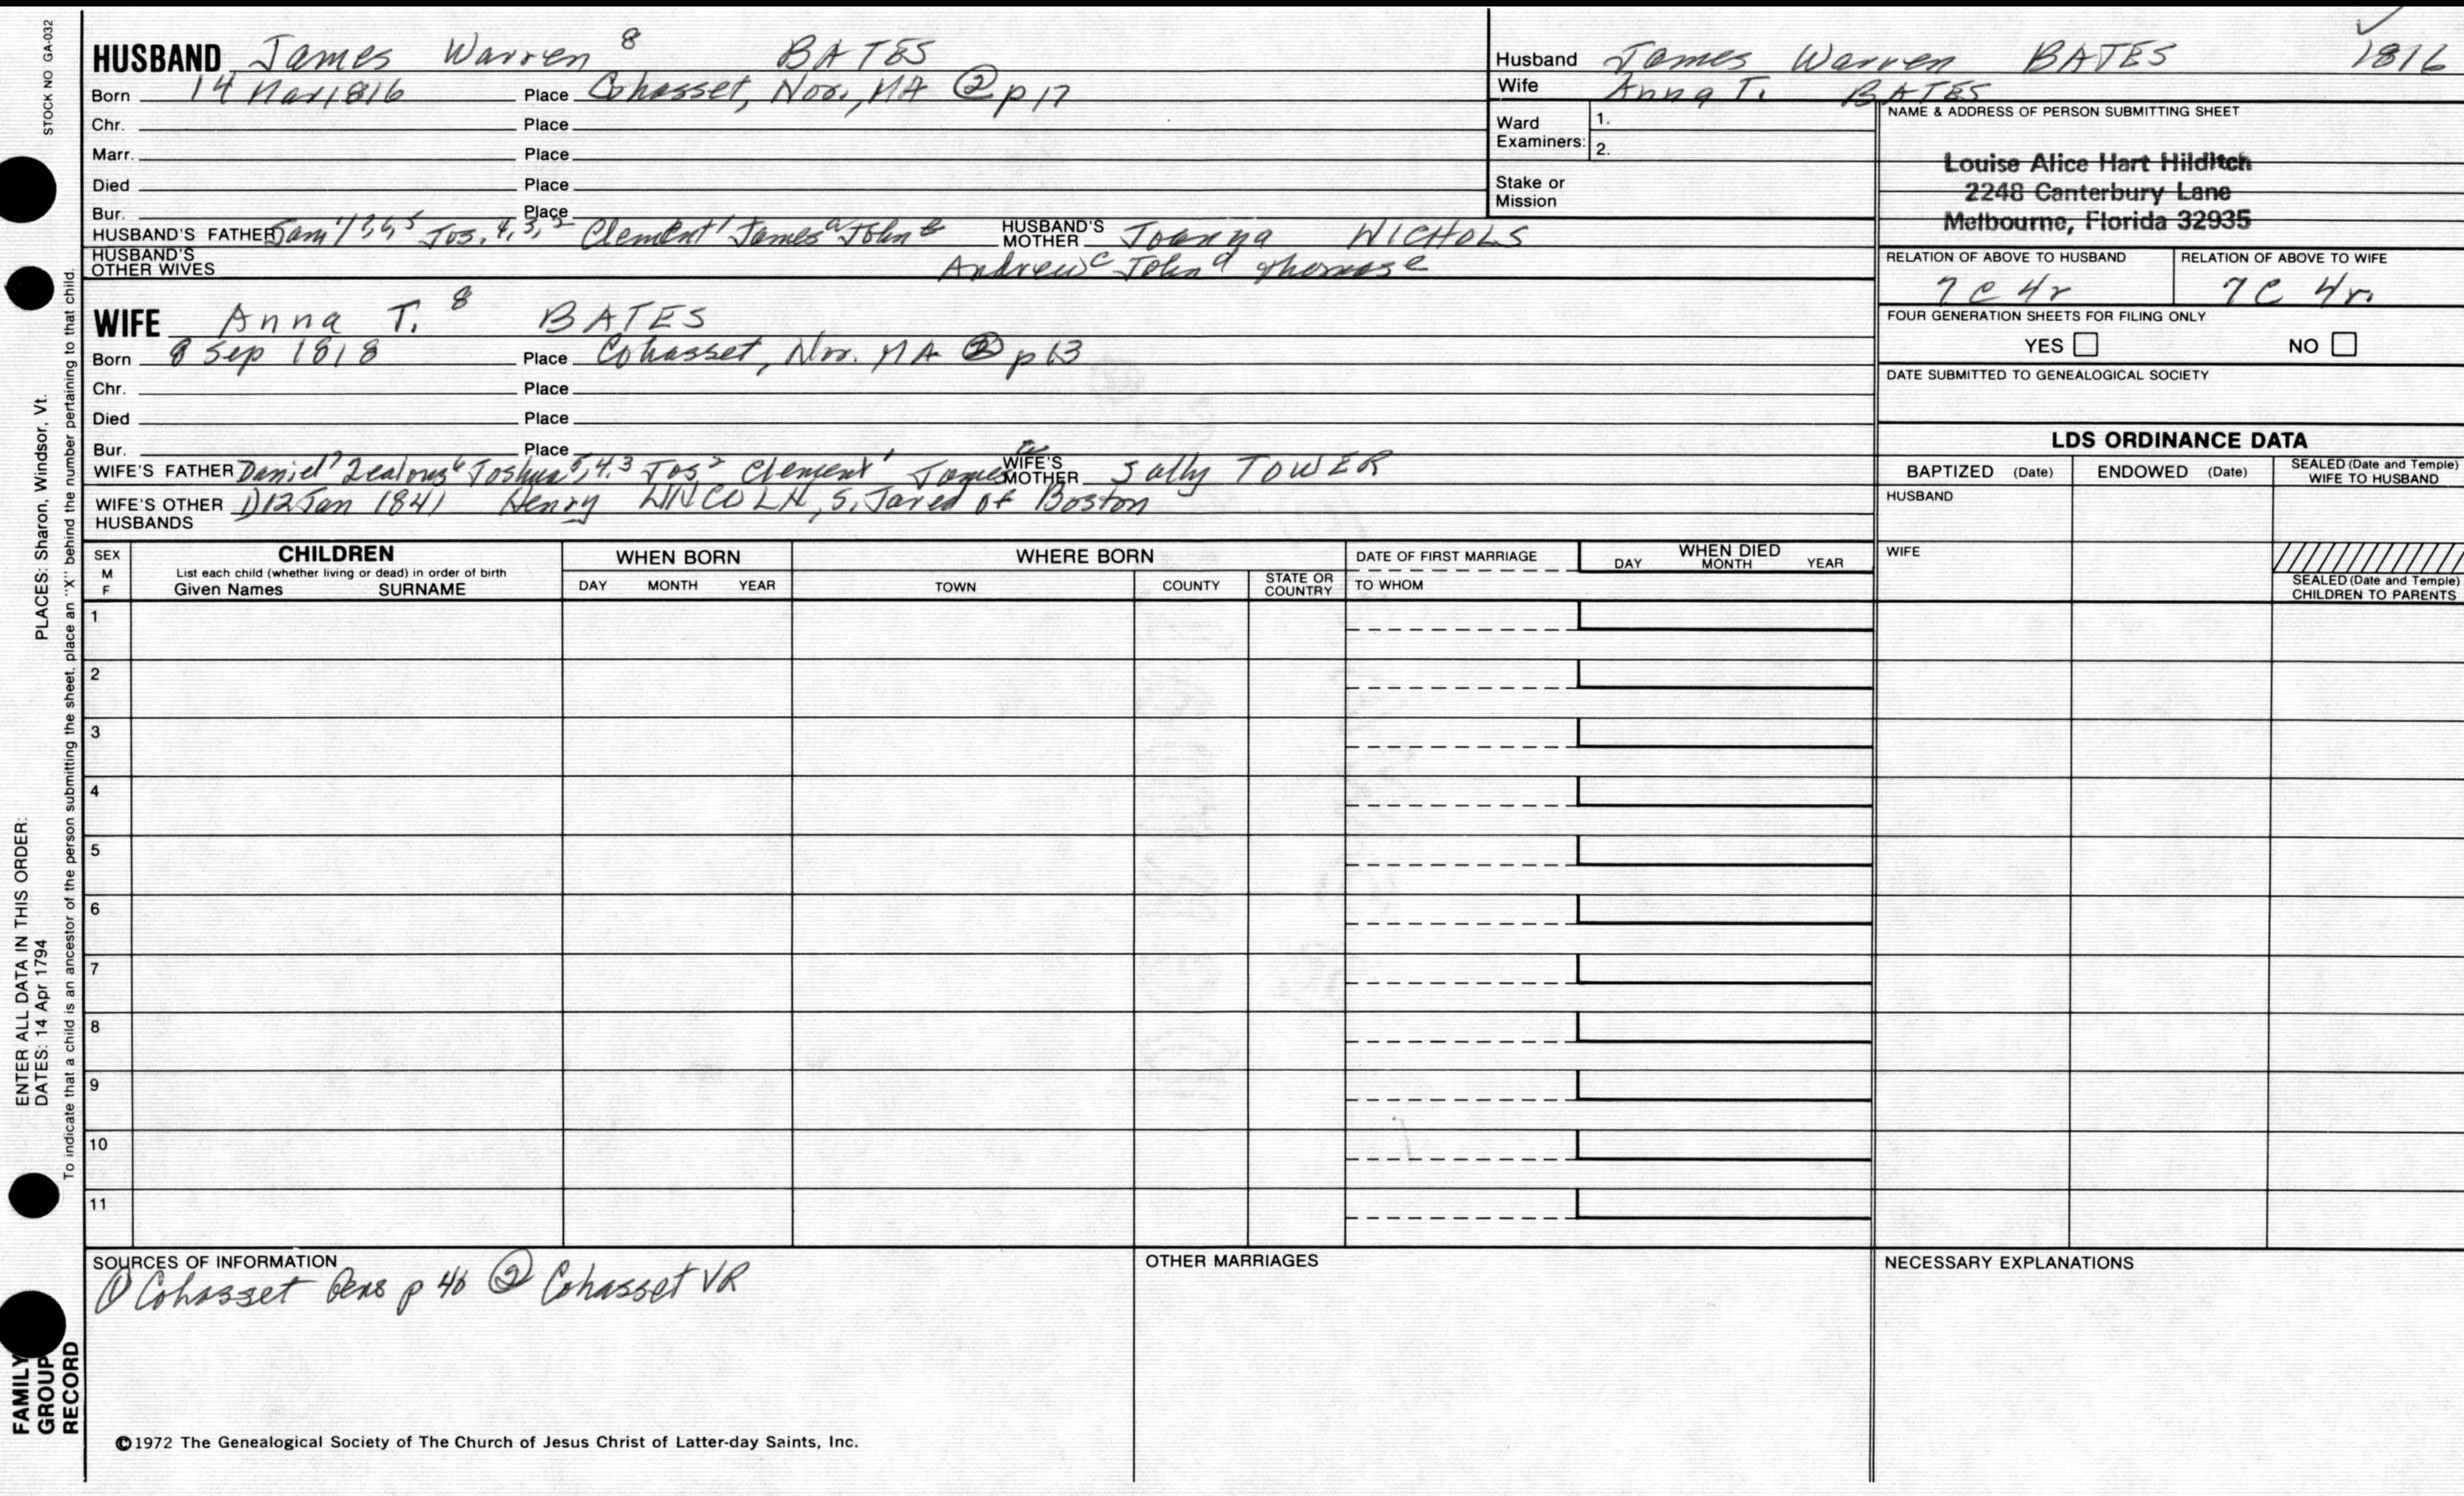 STOCK NO GA-032
HUSBAND James Warren 8 BATES
Born 14 Mar 1816 Place Cohasset, Nor., MA ② p 17
Chr. Place
Marr. Place
Died Place
Bur. Place
HUSBAND'S FATHER Sam 7, 6, 5 Jos. 4, 3, 2 Clement 1 James a John b HUSBAND'S MOTHER Joanna NICHOLS
HUSBAND'S OTHER WIVES Andrew c John d Thomas e
WIFE Anna T. 8 BATES
Born 8 Sep 1818 Place Cohasset, Nor. MA ② p 13
Chr. Place
Died Place
Bur. Place
WIFE'S FATHER Daniel 7 Zealous 6 Joshua 5, 4, 3 Jos 2 Clement 1 James WIFE'S MOTHER Sally TOWER
WIFE'S OTHER HUSBANDS 1) 12 Jan 1841 Henry LINCOLN, S. Jared of Boston
Husband James Warren BATES 1816
Wife Anna T. BATES
Ward Examiners: 1.
2.
Stake or Mission
NAME & ADDRESS OF PERSON SUBMITTING SHEET
Louise Alice Hart Hilditch
2248 Canterbury Lane
Melbourne, Florida 32935
RELATION OF ABOVE TO HUSBAND RELATION OF ABOVE TO WIFE
7 C 4r 7 C 4r.
FOUR GENERATION SHEETS FOR FILING ONLY
YES NO
DATE SUBMITTED TO GENEALOGICAL SOCIETY
LDS ORDINANCE DATA
BAPTIZED (Date) ENDOWED (Date) SEALED (Date and Temple) WIFE TO HUSBAND
HUSBAND
WIFE
SEALED (Date and Temple) CHILDREN TO PARENTS
SEX M F
CHILDREN
List each child (whether living or dead) in order of birth
Given Names SURNAME
WHEN BORN
DAY MONTH YEAR
WHERE BORN
TOWN COUNTY STATE OR COUNTRY
DATE OF FIRST MARRIAGE
TO WHOM
WHEN DIED
DAY MONTH YEAR
1
2
3
4
5
6
7
8
9
10
11
SOURCES OF INFORMATION
① Cohasset Gens p 46 ② Cohasset VR
OTHER MARRIAGES
NECESSARY EXPLANATIONS
©1972 The Genealogical Society of The Church of Jesus Christ of Latter-day Saints, Inc.
ENTER ALL DATA IN THIS ORDER:
DATES: 14 Apr 1794 PLACES: Sharon, Windsor, Vt.
To indicate that a child is an ancestor of the person submitting the sheet, place an "X" behind the number pertaining to that child.
FAMILY GROUP RECORD